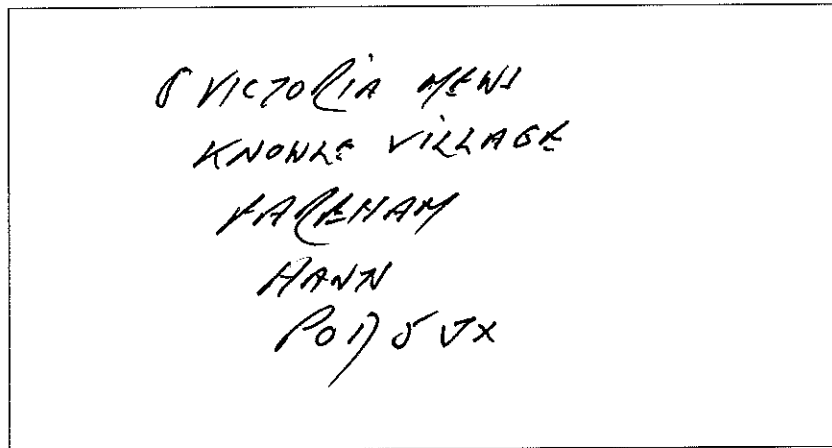 5 VICTORIA MEWS
KNOWLE VILLAGE
FAREHAM
HANTS
PO17 5